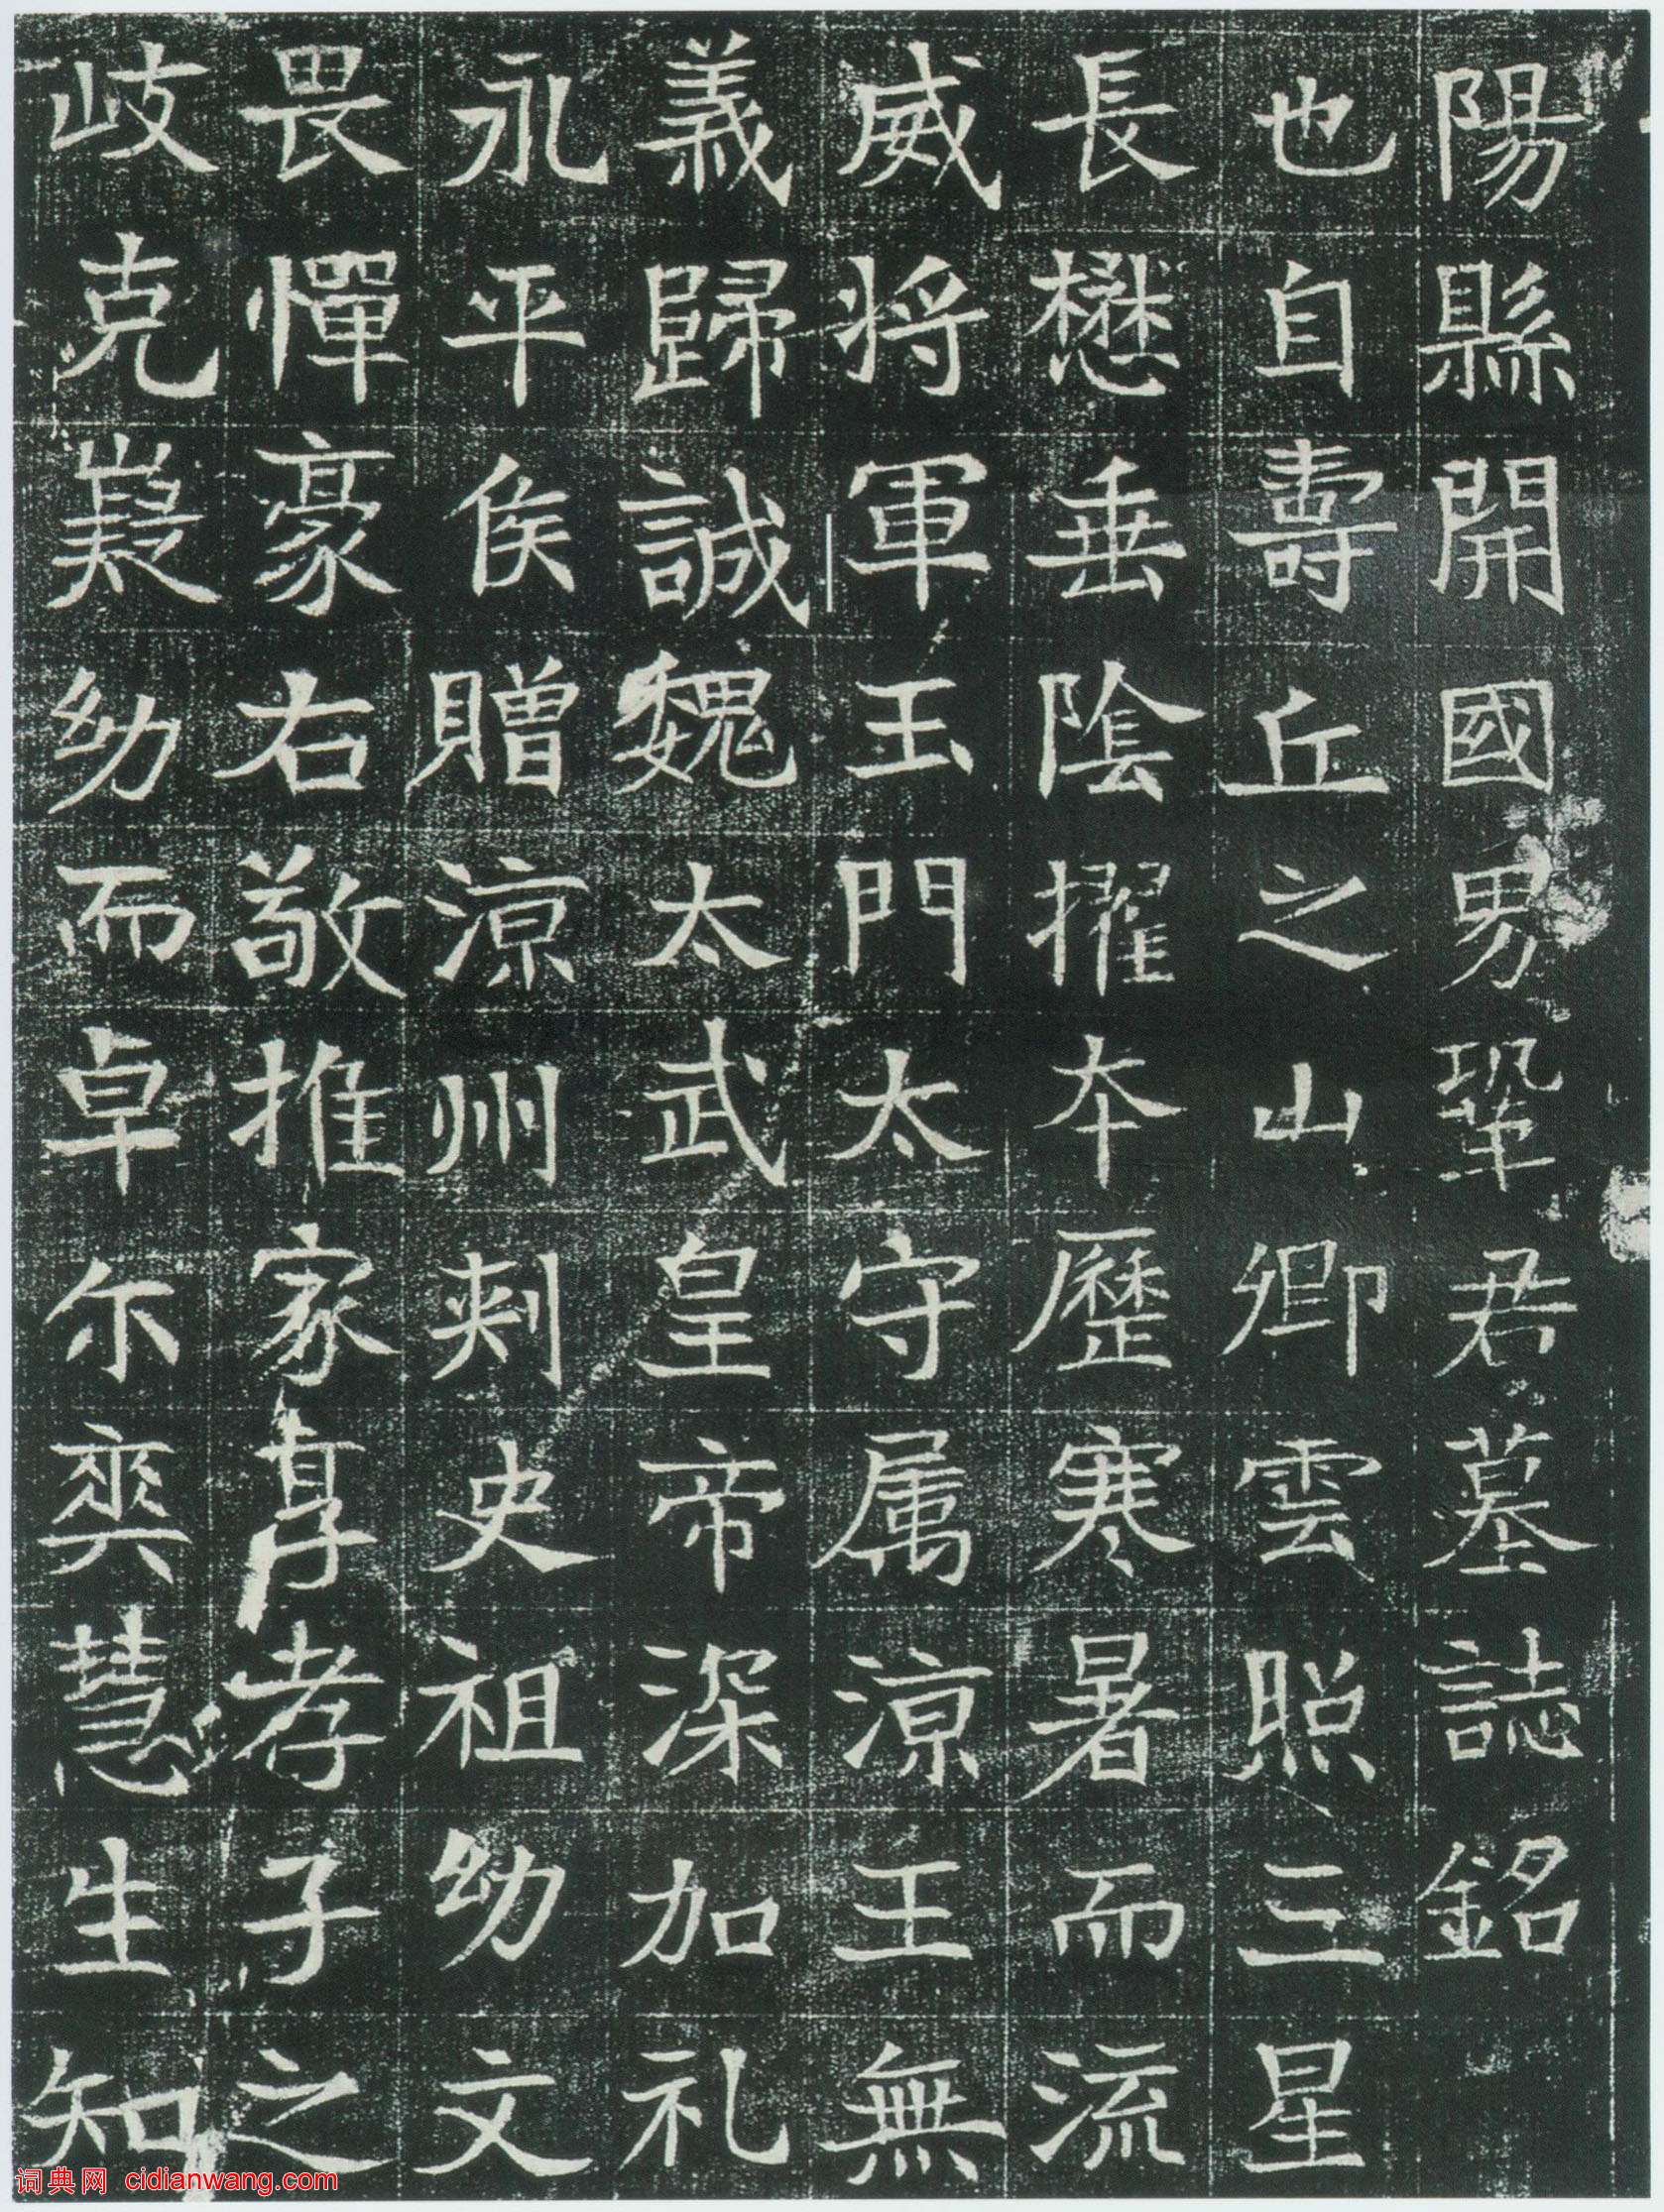 陽縣開國男鞏君墓誌銘
也自壽丘之山卿雲照三星
長懋垂陰擢夲歷寒暑而流
威将軍玉門太守属涼王無
義歸誠魏太武皇帝深加礼
永平侯贈涼州刾史祖幼文
畏憚豪右敬推家享孝子之
歧克嶷幼而卓尔奕慧生知
词典网 cidianwang.com